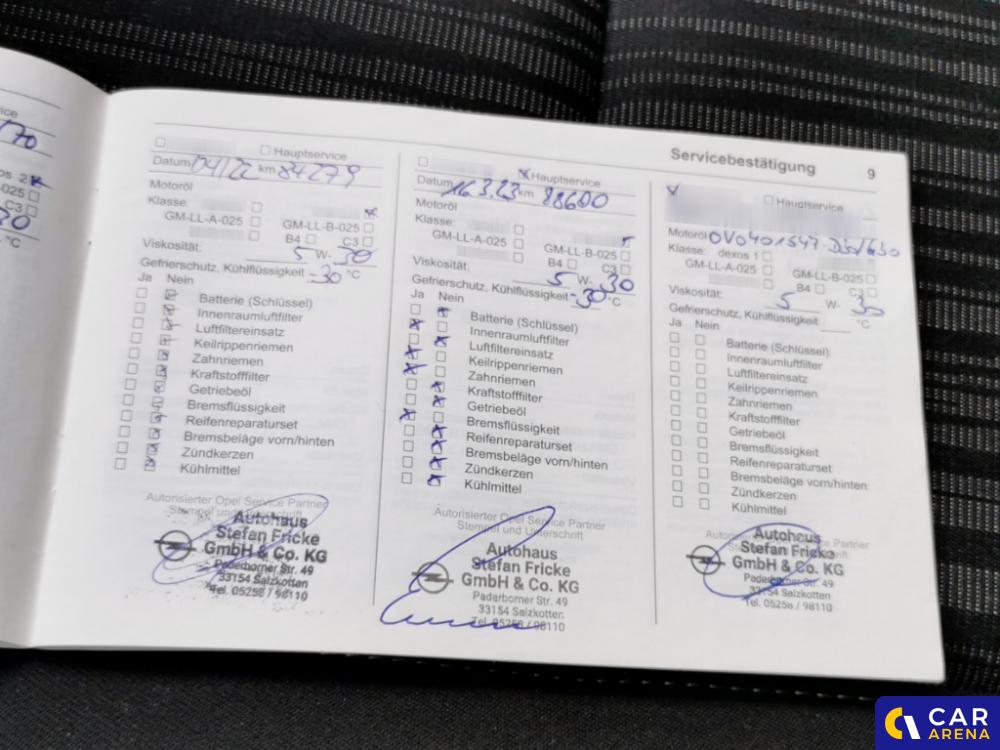 Servicebestätigung 9
170
30
°C
☐ Hauptservice
Datum 04/22 km 84279
Motoröl
Klasse:
GM-LL-A-025 GM-LL-B-025
B4 C3
Viskosität: 5 W- 30
Gefrierschutz, Kühlflüssigkeit -30 °C
Ja Nein
Batterie (Schlüssel)
Innenraumluftfilter
Luftfiltereinsatz
Keilrippenriemen
Zahnriemen
Kraftstofffilter
Getriebeöl
Bremsflüssigkeit
Reifenreparaturset
Bremsbeläge vorn/hinten
Zündkerzen
Kühlmittel
Autorisierter Opel Service Partner
Stempel und Unterschrift
Autohaus
Stefan Fricke
GmbH & Co. KG
Paderborner Str. 49
33154 Salzkotten
Tel. 05258 / 98110
Hauptservice
Datum 16.3.23 km 88600
Motoröl
Klasse:
GM-LL-A-025 GM-LL-B-025
B4 C3
Viskosität: 5 W- 30
Gefrierschutz, Kühlflüssigkeit -30 °C
Ja Nein
Batterie (Schlüssel)
Innenraumluftfilter
Luftfiltereinsatz
Keilrippenriemen
Zahnriemen
Kraftstofffilter
Getriebeöl
Bremsflüssigkeit
Reifenreparaturset
Bremsbeläge vorn/hinten
Zündkerzen
Kühlmittel
Autorisierter Opel Service Partner
Stempel und Unterschrift
Autohaus
Stefan Fricke
GmbH & Co. KG
Paderborner Str. 49
33154 Salzkotten
Tel. 05258 / 98110
Hauptservice
Motoröl OV0401547
Klasse: dexos 1
GM-LL-A-025 GM-LL-B-025
B4 C3
Viskosität: 5 W- 30
Gefrierschutz, Kühlflüssigkeit °C
Ja Nein
Batterie (Schlüssel)
Innenraumluftfilter
Luftfiltereinsatz
Keilrippenriemen
Zahnriemen
Kraftstofffilter
Getriebeöl
Bremsflüssigkeit
Reifenreparaturset
Bremsbeläge vorn/hinten
Zündkerzen
Kühlmittel
Autohaus
Stefan Fricke
GmbH & Co. KG
Paderborner Str. 49
33154 Salzkotten
Tel. 05258 / 98110
CAR
ARENA